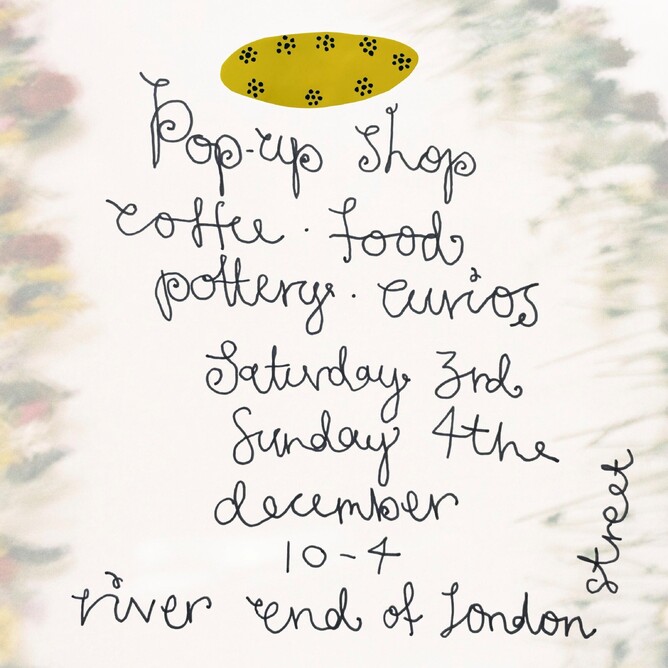 Pop-up shop
coffee · food
pottery · curios
Saturday 3rd
Sunday 4the
december
10-4
river end of London
street